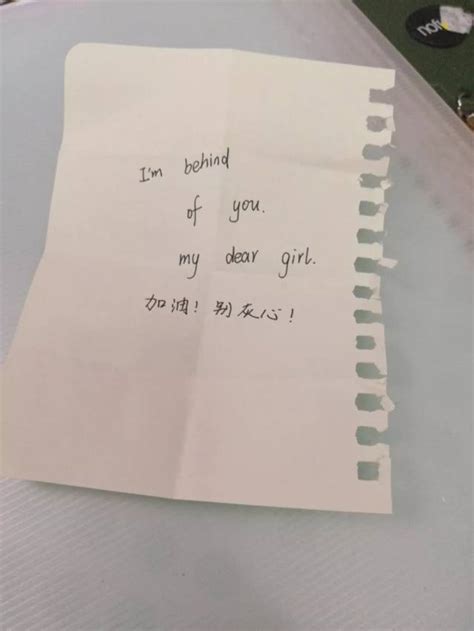 I'm behind
of you.
my dear girl.
加油！别灰心！